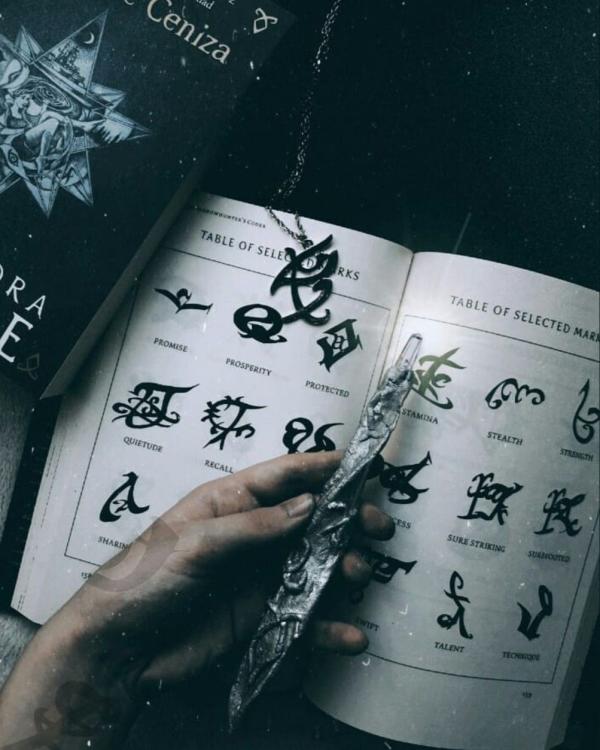 Ceniza
SHADOWHUNTER'S CODEX
TABLE OF SELECTED MARKS
PROMISE
PROSPERITY
PROTECTED
QUIETUDE
RECALL
TABLE OF SELECTED MARK
STAMINA
STEALTH
STRENGTH
SURE STRIKING
SURMOUTED
SWIFT
TALENT
TECHNIQUE